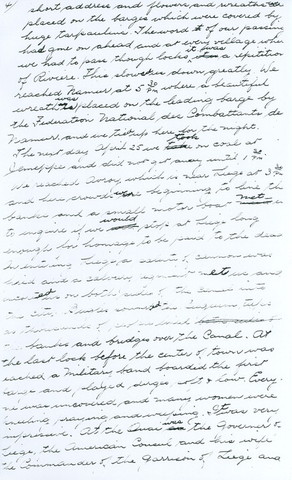 4/ short address and flowers and wreaths
placed on the barges which were covered by
huge tarpaulins. The word of our passing
had gone on ahead and at every village where
we had to pass through locks it was a repetition
of Riviere. This slowed us down greatly. We
reached Namur at 5 30 PM where a beautiful
wreath was placed on the leading barge by
the Federation National des Combattants de
Namur and we tied up here for the night.
The next day April 25 we took on coal at
Jemeppe and did not get away until 1 30 PM
We reached which is near Liege at 3 30 PM
and here crowds were beginning to line the
banks and a small motor boat met
to enquire if we would stop at Liege long
enough for homage to be paid to the dead
In entering Liege, a salute of cannon was
fired and a military escort met us and
on both sides of the canal into
the city.
thousands of people lined
banks and bridges over the Canal. At
the last lock before the center of town was
reached a Military band boarded the first
barge and played dirges, soft & low. Every-
one was uncovered, and many women were
kneeling, praying and weeping. It was very
impressive. At the Quai was the Governor of
Liege, the American Consul and his wife
the Commander of the Garrison of Liege and